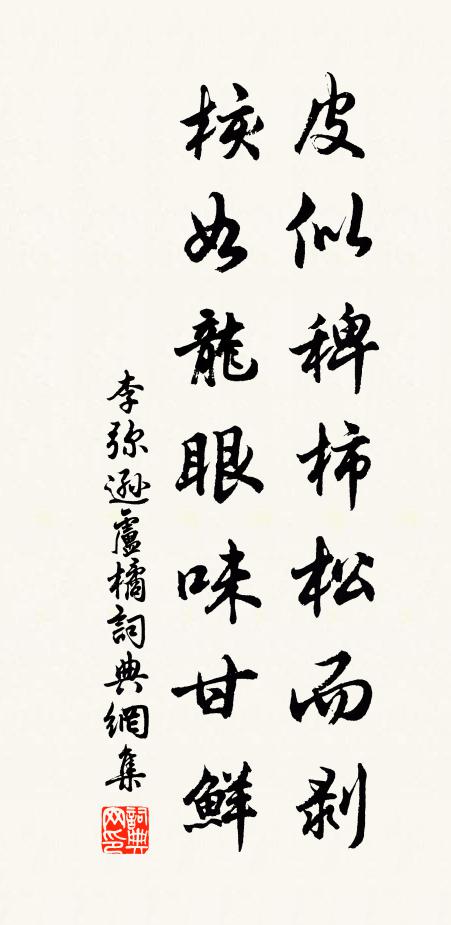 皮似稗柿松而剥
核如龍眼味甘鮮
李弥遜盧橘詞典網集
詞典网印